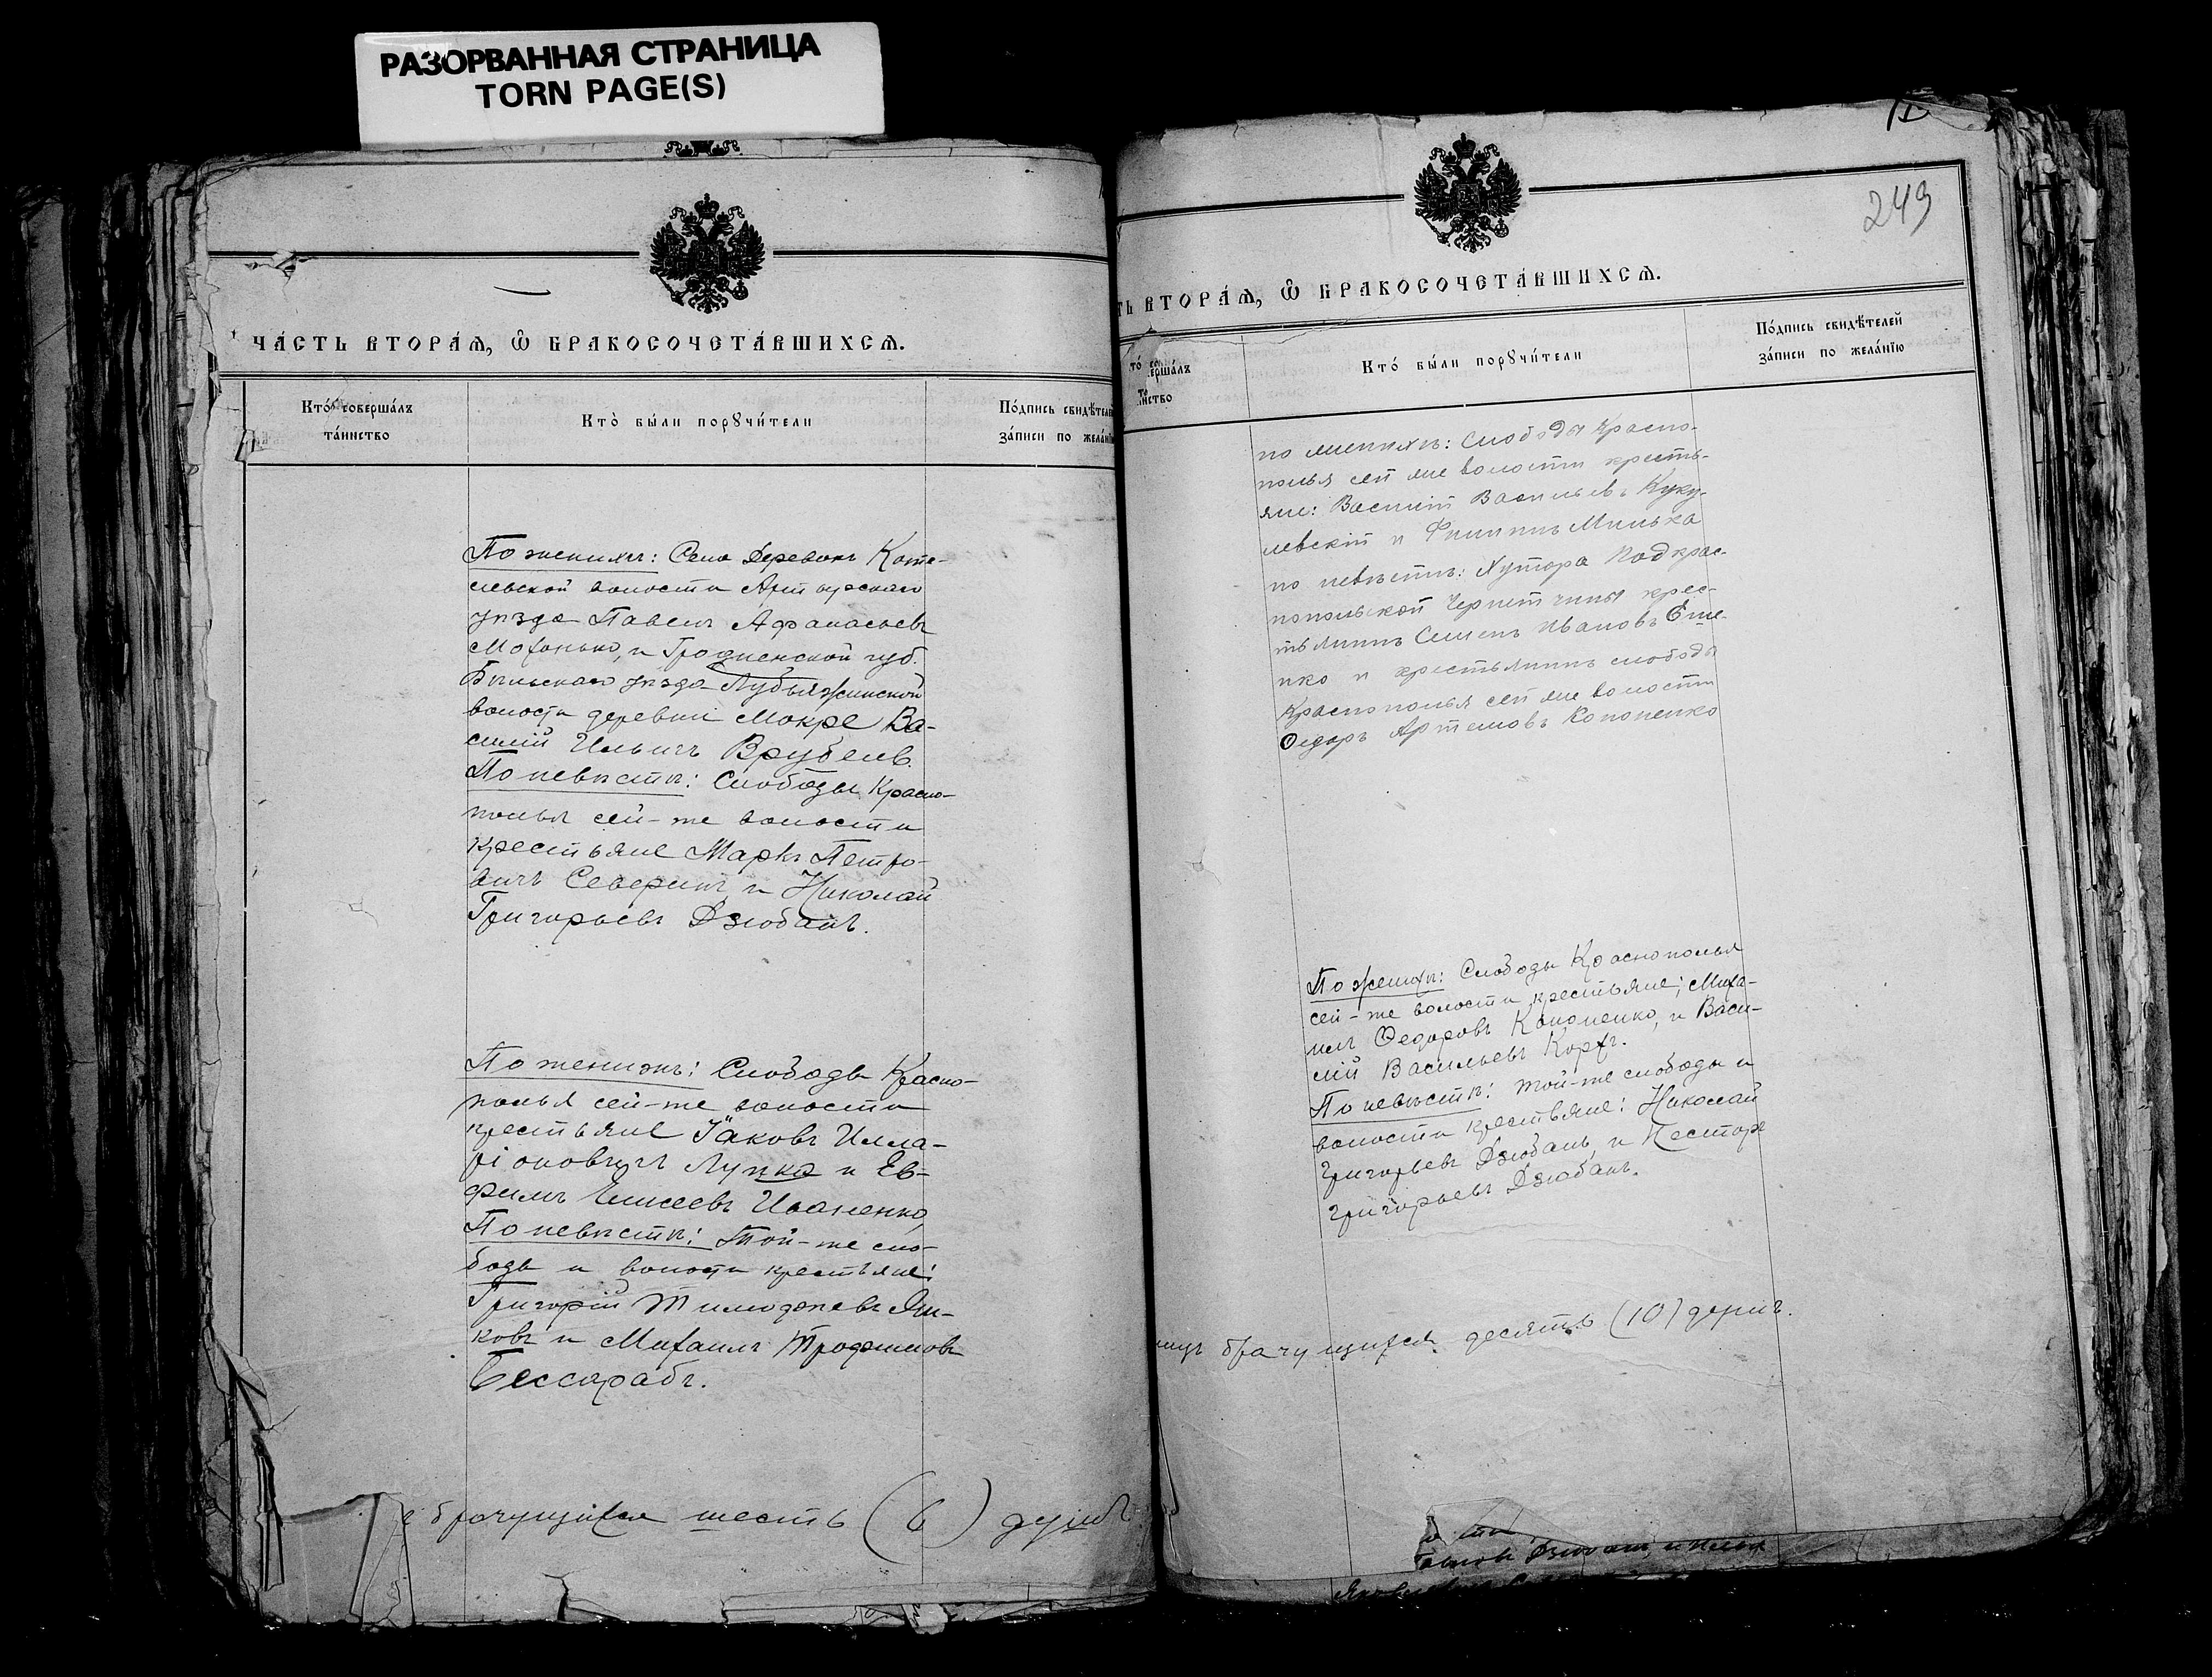 РАЗОРВАННАЯ СТРАНИЦА
TORN PAGE(S)
ЧА́СТЬ ВТОРА́Ѧ, Ѽ БРАКОСОЧЕТА́ВШИХСѦ.
Кто̀ совершáлъ
тáинство
Кто̀ бы́ли порꙋчи́тели
По́дпись свидѣ́телей
зáписи по желáнїю
По женихѣ: Села Деревокъ Коте-
левской волости Ахтырскаго
уѣзда Павелъ Афанасьевъ
Мохонько, и Гродненской губ.
Бѣльскаго уѣзда
волости деревни Мокре Ва-
силій Ильичъ Врубель.
По невѣстѣ: Слободы Красно-
полья сей-же волости
крестьяне Маркъ Петро-
вичъ Северинъ и Николай
Григорьевъ Дзюбанъ.
По женихѣ: Слободы Красно-
полья сей-же волости
крестьяне Іаковъ Илла-
ріоновичъ Лупка и Ев-
фимъ Елисеевъ Иваненко,
По невѣстѣ: Той-же сло-
боды и волости крестьяне:
Григорій Тимофеевъ Яш-
ковъ и Михаилъ Трофимовъ
Бессарабъ.
брачущихся шесть (6) душъ
249
ТЬ ВТОРА́Ѧ, Ѽ БРАКОСОЧЕТА́ВШИХСѦ.
Кто́ бы́ли порꙋчи́тели
По́дпись свидѣ́телей
зáписи по желáнїю
по женихѣ: Слободы Красно-
полья сей же волости кресть-
яне: Василій Васильевъ Куку-
левскій и Филиппъ Милька
по невѣстѣ: Хутора Подкрас-
нопольской Чернетчины крес-
тьянинъ Семенъ Ивановъ Еме-
нко и крестьянинъ слободы
Краснополья сей же волости
Ѳедоръ Артемовъ Кононенко
По женихѣ: Слободы Краснополья
сей-же волости крестьяне: Миха-
илъ Ѳедоровъ Кононенко, и Васи-
лій Васильевъ Корхъ.
По невѣстѣ: той-же слободы и
волости крестьяне: Николай
Григорьевъ Дзюбанъ, и Несторъ
Григорьевъ Дзюбанъ.
брачущихся десять (10) душъ.
Дзюбанъ, и